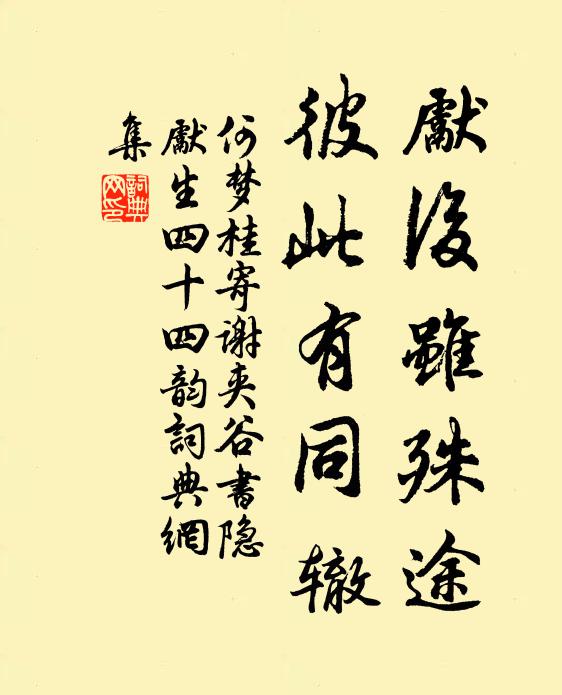 獻没雖殊途
彼此有同辙
何梦桂寄谢夹谷书隐
獻生四十四韵詞典網
集
詞典網印